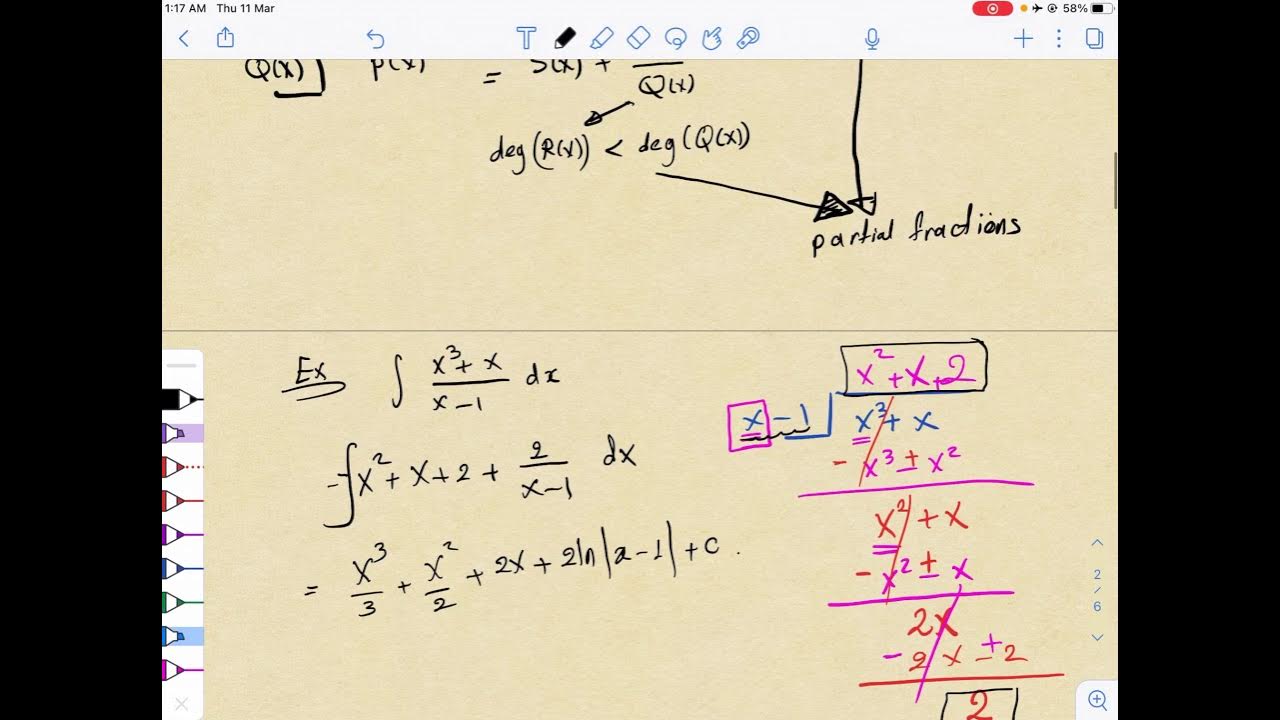 1:17 AM Thu 11 Mar
58%
T
Q(x) P(x) = S(x) +
Q(x)
deg(R(x)) < deg(Q(x))
partial fractions
Ex ∫ x³ + x / x − 1 dx
∫ x² + x + 2 + 2 / x − 1 dx
= x³/3 + x²/2 + 2x + 2ln|x − 1| + C .
x² + x + 2
x − 1 x³ + x
− x³ ± x²
x² + x
− x² ± x
2x
− 2x ± 2
2
2 / 6